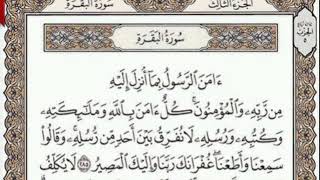 الجزء الثالث
سورة البقرة
سُورَةُ الْبَقَرَةِ
ءَامَنَ الرَّسُولُ بِمَا أُنزِلَ إِلَيْهِ
مِن رَّبِّهِ وَالْمُؤْمِنُونَ كُلٌّ ءَامَنَ بِاللَّهِ وَمَلَائِكَتِهِ
وَكُتُبِهِ وَرُسُلِهِ لَا نُفَرِّقُ بَيْنَ أَحَدٍ مِّن رُّسُلِهِ وَقَالُوا
سَمِعْنَا وَأَطَعْنَا غُفْرَانَكَ رَبَّنَا وَإِلَيْكَ الْمَصِيرُ ٢٨٥ لَا يُكَلِّفُ